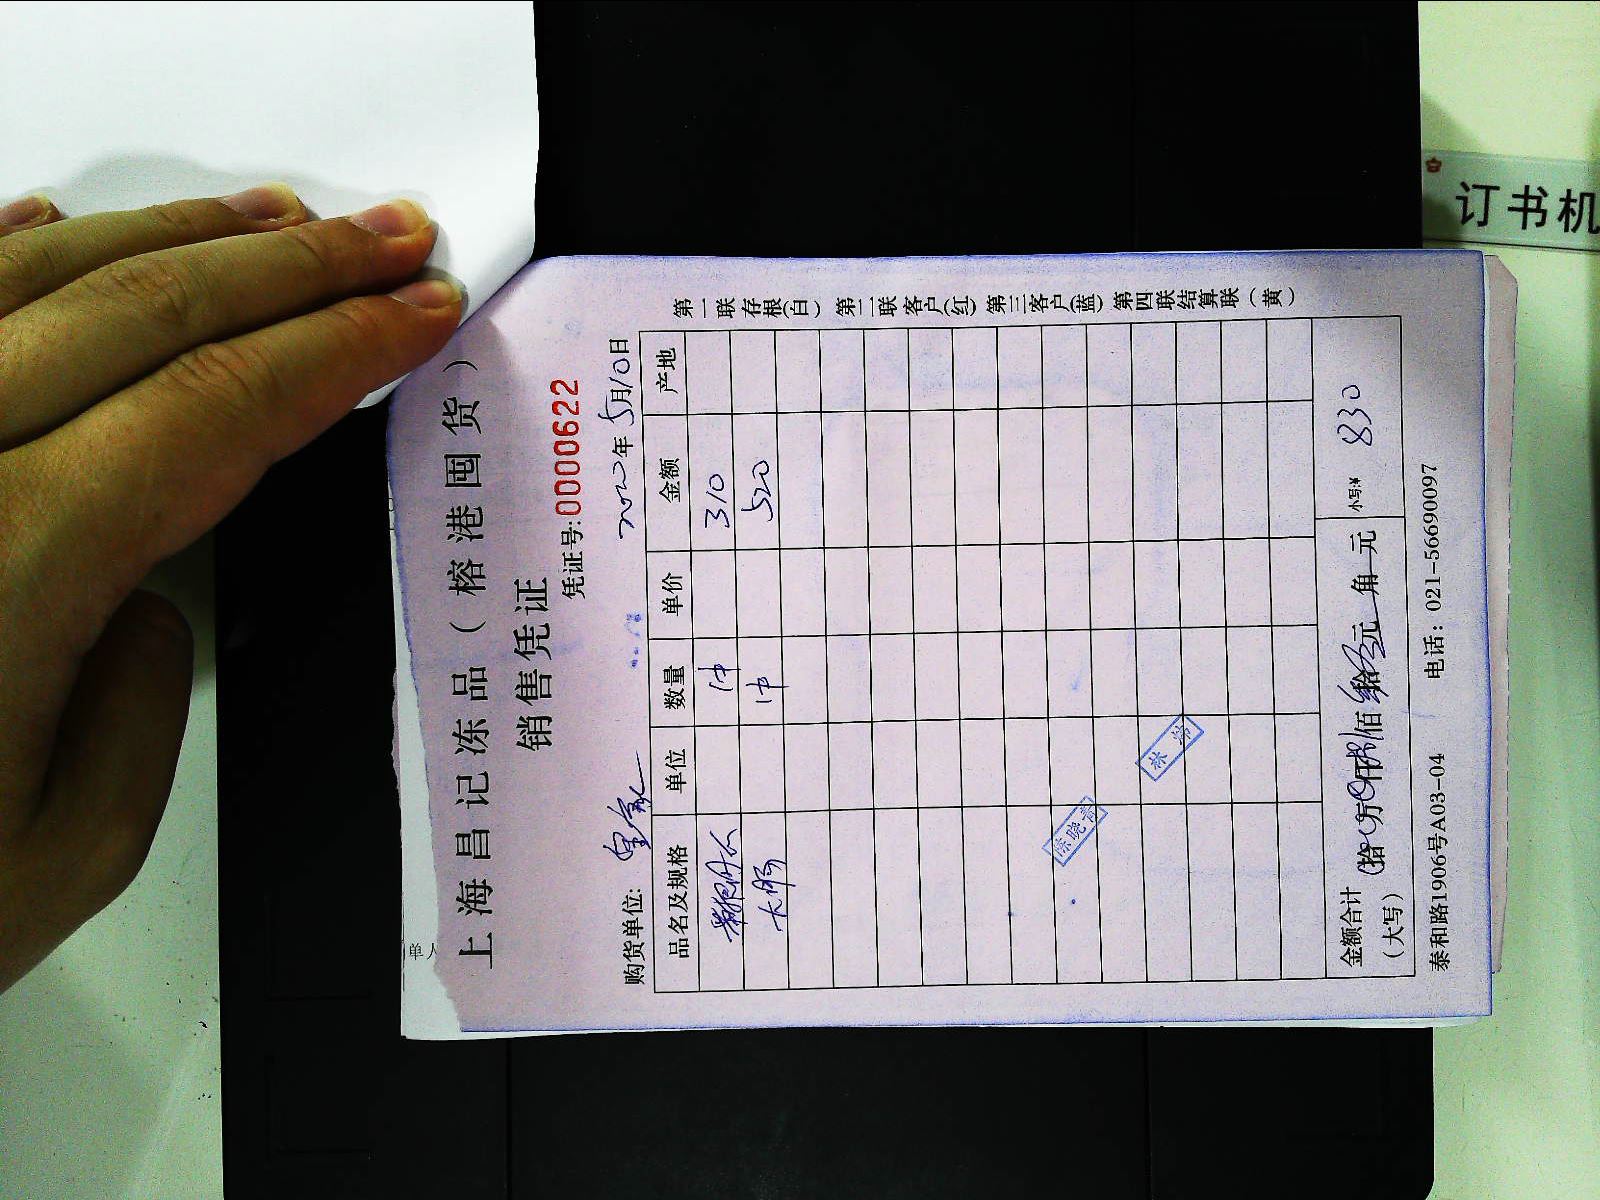 上海昌记冻品（榕港囤货）
销售凭证
凭证号:0000622
购货单位: 2020年5月10日
品名及规格 单位 数量 单价 金额 产地
1件 310
大肠 1件 520
陈晓青
林
金额合计（大写） 拾 万 仟 捌佰 叁拾 元 角 元 小写:¥ 830
泰和路1906号A03-04 电话：021-56690097
第一联存根(白) 第二联客户(红) 第三客户(蓝) 第四联结算联（黄）
单人
订书机